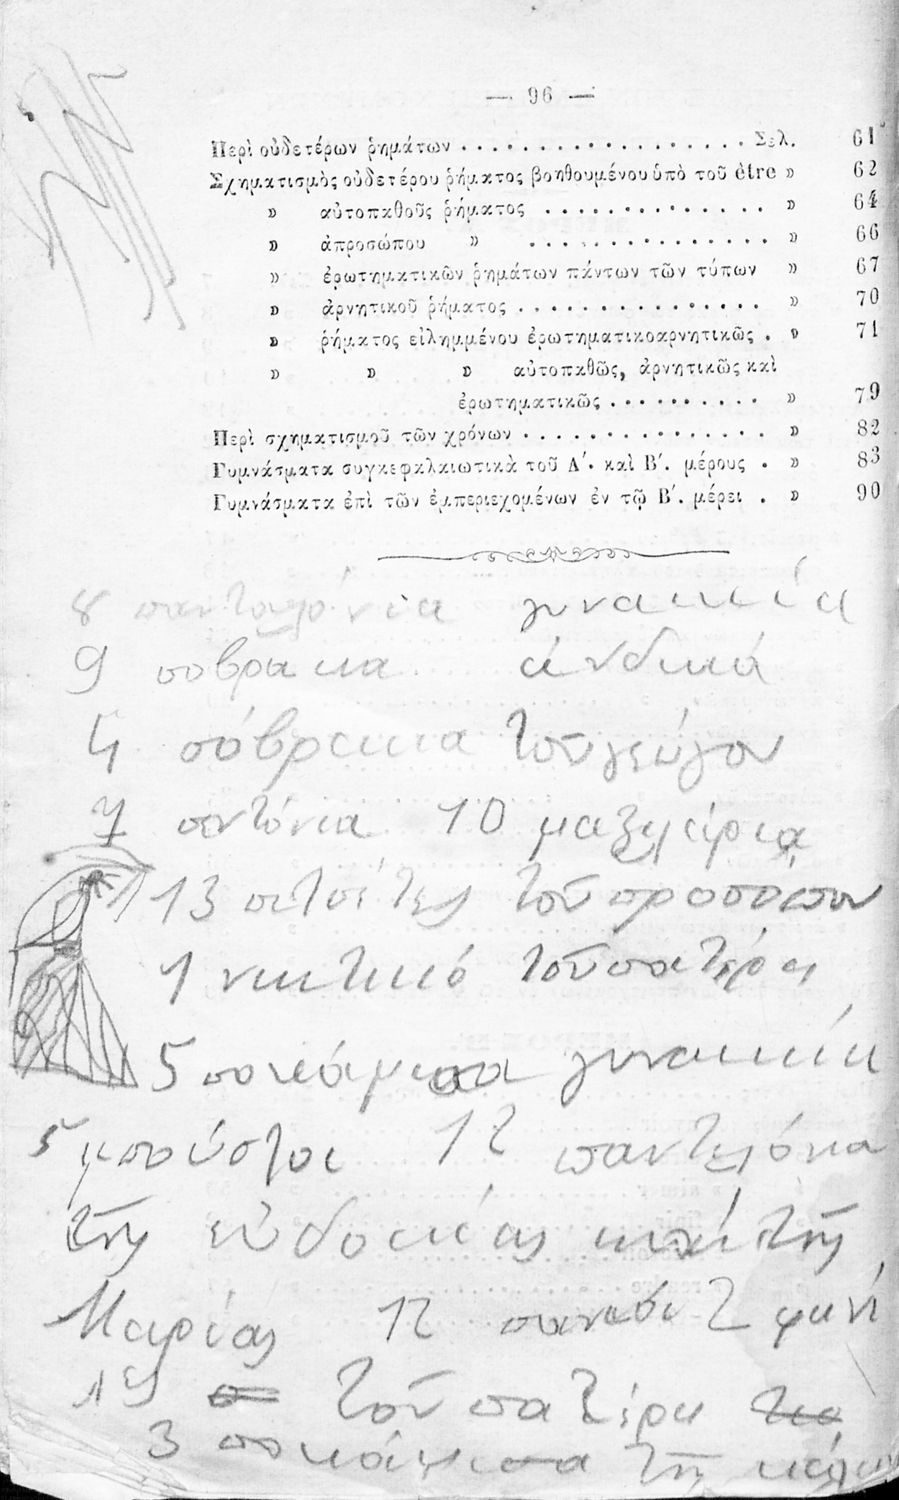 — 96 —
Περὶ οὐδετέρων ῥημάτων . . . . . . . . . . . . . . . . . . Σελ. 61
Σχηματισμὸς οὐδετέρου ῥήματος βοηθουμένου ὑπὸ τοῦ être » 62
» αὐτοπαθοῦς ῥήματος . . . . . . . . . . . . . . » 64
» ἀπροσώπου » . . . . . . . . . . . . . . . » 66
» ἐρωτηματικῶν ῥημάτων πάντων τῶν τύπων » 67
» ἀρνητικοῦ ῥήματος . . . . . . . . . . . . . . . . » 70
» ῥήματος εἰλημμένου ἐρωτηματικοαρνητικῶς . » 71
» » » αὐτοπαθῶς, ἀρνητικῶς καὶ
ἐρωτηματικῶς . . . . . . . . . . » 79
Περὶ σχηματισμοῦ τῶν χρόνων . . . . . . . . . . . . . . . » 82
Γυμνάσματα συγκεφαλαιωτικὰ τοῦ Α΄. καὶ Β΄. μέρους . » 83
Γυμνάσματα ἐπὶ τῶν ἐμπεριεχομένων ἐν τῷ Β΄. μέρει . » 90
8 γυναικεία
9 σοβρακα ἀνδικά
4 σόβρακα τοῦ
7 σντόνια 10 μαξιλάρια
13 πετσέτες τοῦ προσόπου
1 νικτικό τοῦ πατέρα
5 ποκάμισα γυναικία
5 μπούστοι 12 παντελόνια
τῆς εὐδοκίας καὶ τῆς
Μαρίας 12 2
τοῦ πατέρα
3 ποκάμισα τῆ